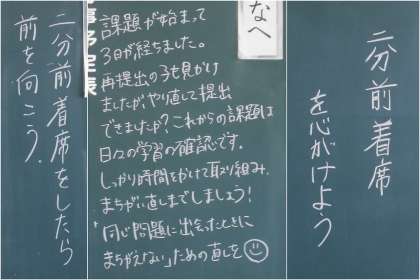 二分前着席をしたら
前を向こう.
なへ
課題が始まって
3日が経ちました。
再提出の子も見かけ
ましたが、やり直して提出
できましたか?これからの課題は
日々の学習の確認です.
しっかり時間をかけて取り組み.
まちがい直しまでしましょう!
"同じ問題に出会ったときに
まちがえない"ための直しを
二分前着席
を心がけよう